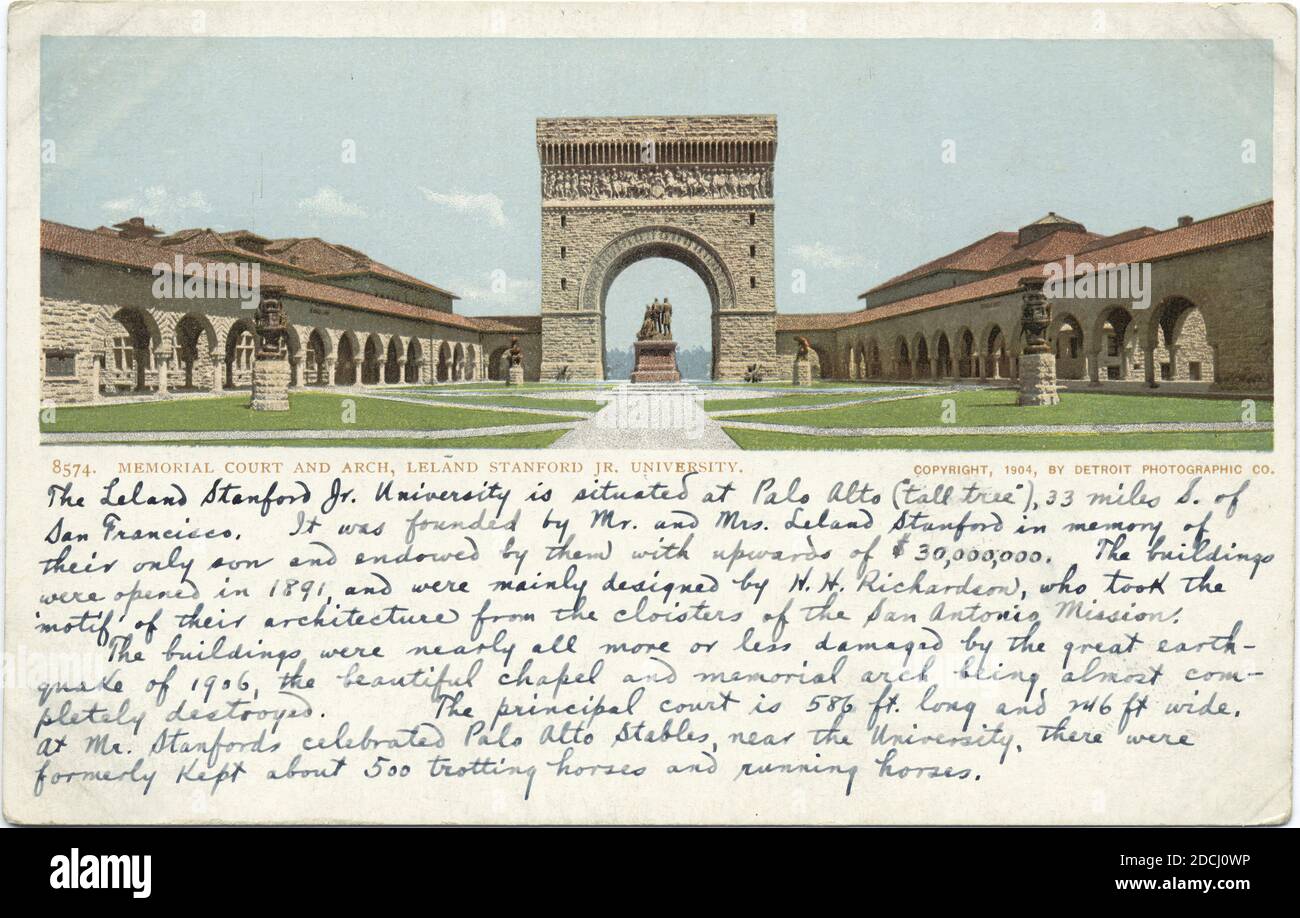 8574. MEMORIAL COURT AND ARCH, LELAND STANFORD JR. UNIVERSITY.
COPYRIGHT, 1904, BY DETROIT PHOTOGRAPHIC CO.
The Leland Stanford Jr. University is situated at Palo Alto ("tall tree"), 33 miles S. of
San Francisco. It was founded by Mr. and Mrs. Leland Stanford in memory of
their only son and endowed by them with upwards of $30,000,000. The buildings
were opened in 1891, and were mainly designed by H. H. Richardson, who took the
'motif' of their architecture from the cloisters of the San Antonio Mission.
The buildings were nearly all more or less damaged by the great earth-
quake of 1906, the beautiful chapel and memorial arch being almost com-
pletely destroyed. The principal court is 586 ft. long and 246 ft wide.
At Mr. Stanfords celebrated Palo Alto Stables, near the University, there were
formerly kept about 500 trotting horses and running horses.
alamy
Image ID: 2DCJ0WP
www.alamy.com